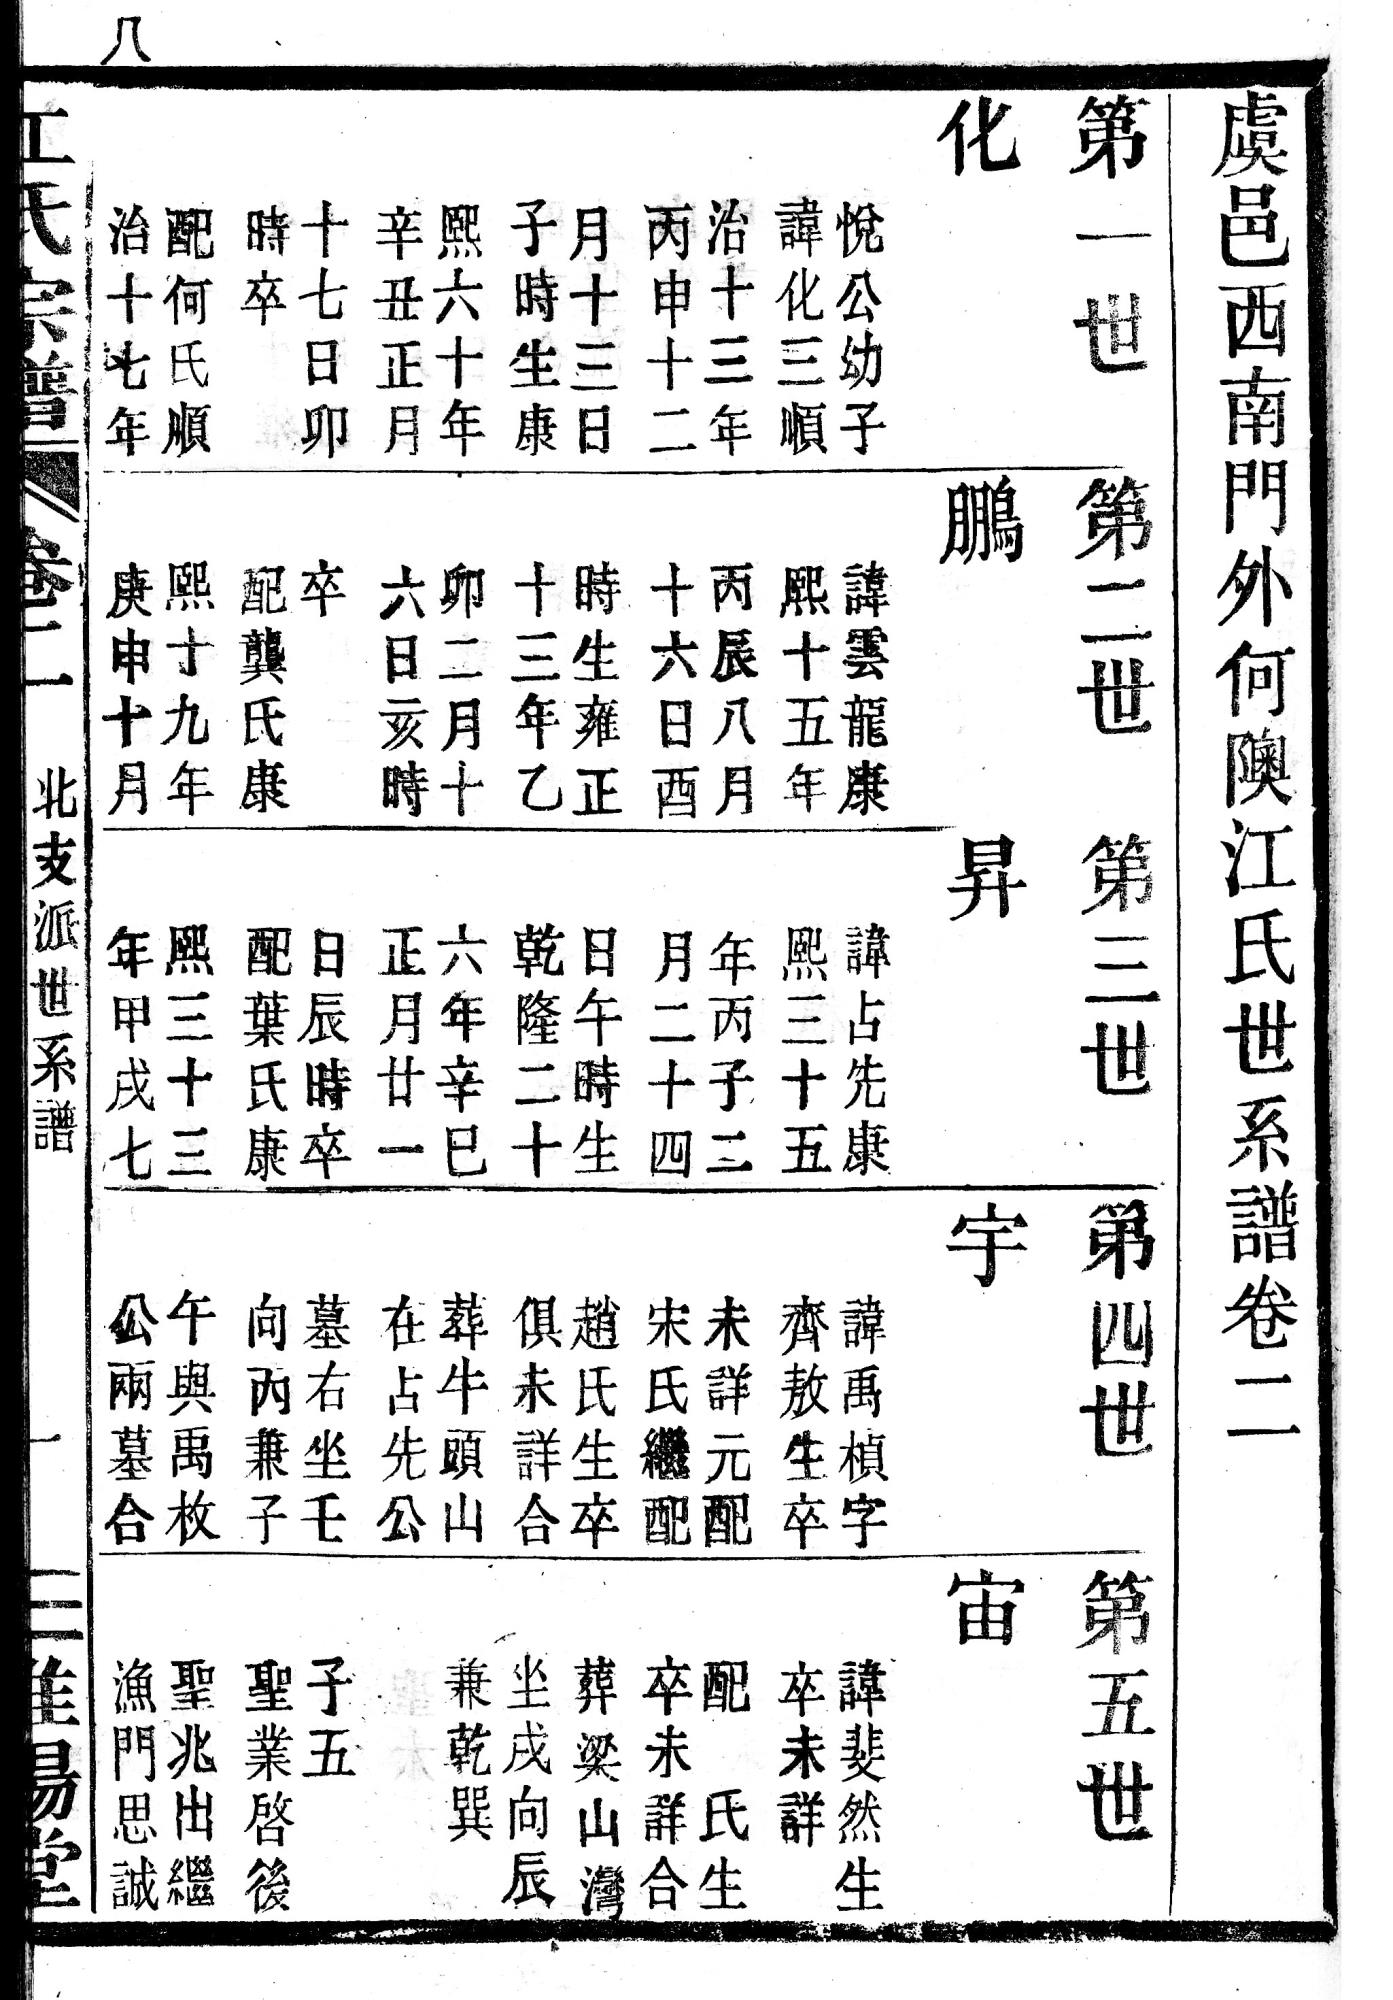 八
虞邑西南門外何隩江氏世系譜卷二
第一世
化
悅公幼子
諱化三順
治十三年
丙申十二
月十三日
子時生康
熙六十年
辛丑正月
十七日卯
時卒
配何氏順
治十七年
第二世
鵬
諱雲龍康
熙十五年
丙辰八月
十六日酉
時生雍正
十三年乙
卯二月十
六日亥時
卒
配龔氏康
熙十九年
庚申十月
第三世
昇
諱占先康
熙三十五
年丙子三
月二十四
日午時生
乾隆二十
六年辛巳
正月廿一
日辰時卒
配葉氏康
熙三十三
年甲戌七
第四世
宇
諱禹楨字
齊敖生卒
未詳元配
宋氏繼配
趙氏生卒
俱未詳合
葬牛頭山
在占先公
墓右坐壬
向丙兼子
午與禹枚
公兩墓合
第五世
宙
諱斐然生
卒未詳
配　氏生
卒未詳合
葬梁山灣
坐戌向辰
兼乾巽
子五
聖業啓後
聖兆出繼
漁門思誠
江氏宗譜
卷二
北支派世系譜
一
三惟陽堂